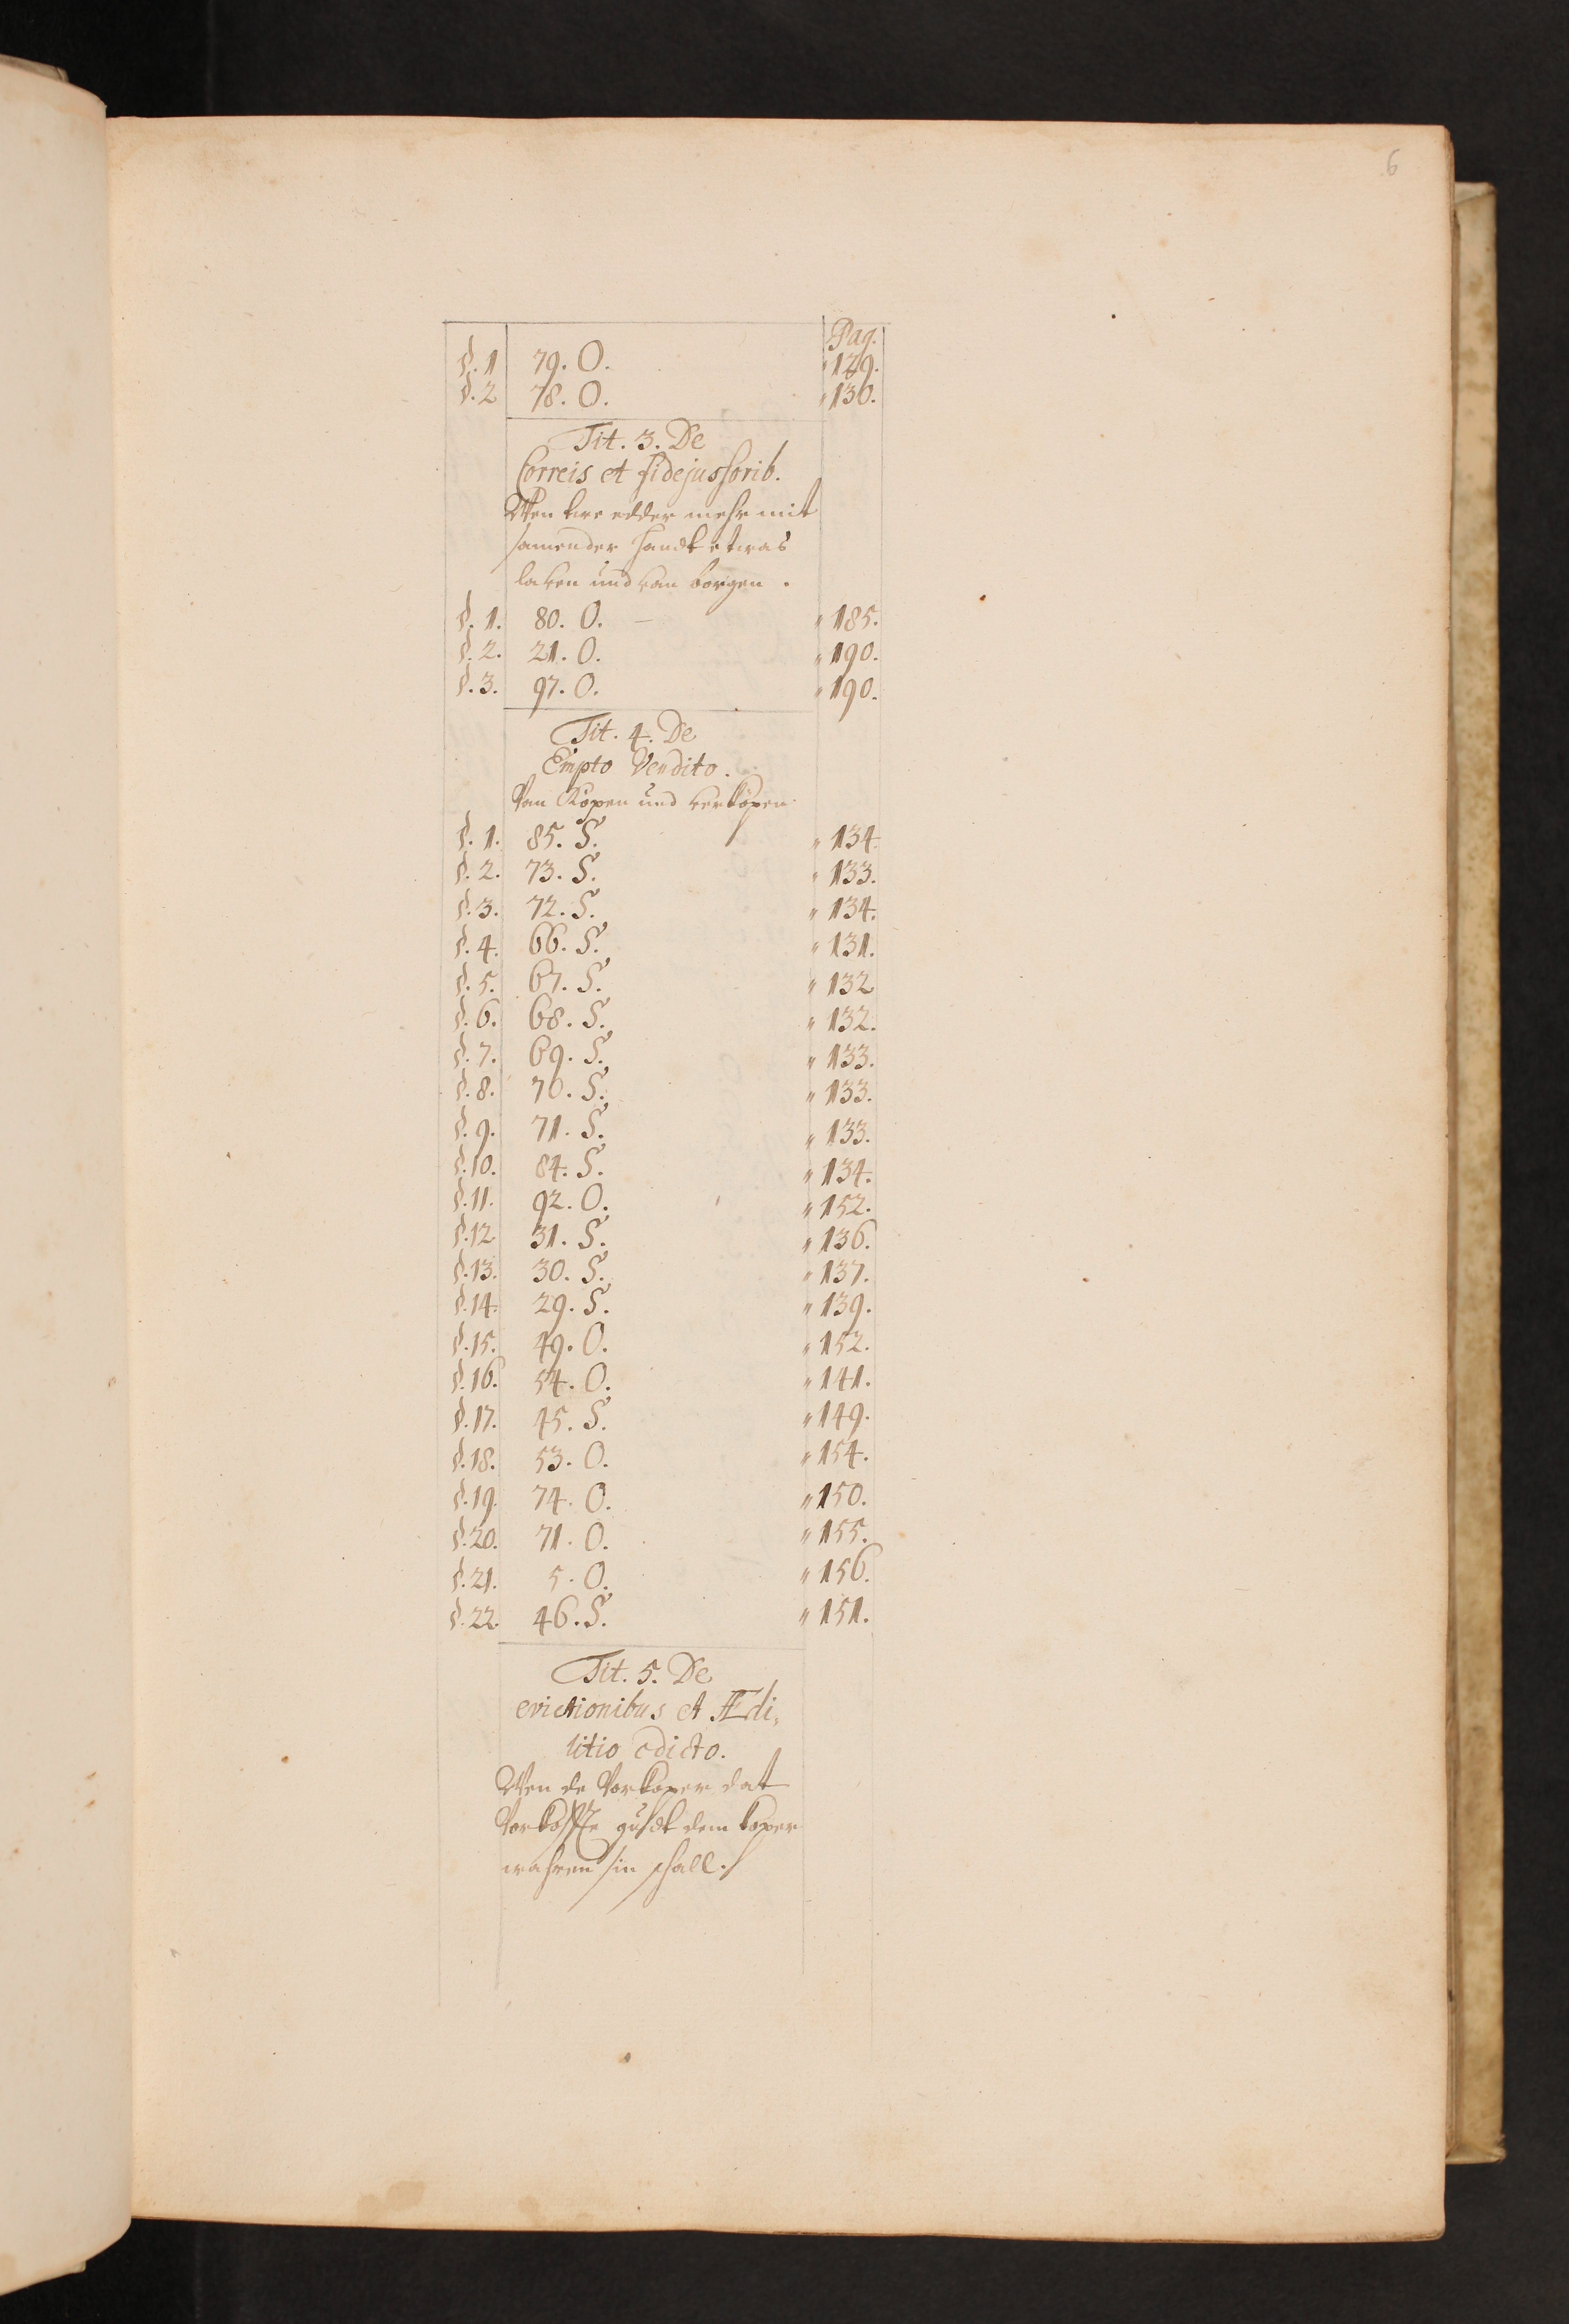 6
Pag.
§. 1 79. O. " 129.
§. 2 78. O. " 130.
Tit. 3. De
Correis et fidejussorib.
Wen twe edder mehr mit
samender Handt etwas
laven und van borgen.
§. 1. 80. O. " 185.
§. 2. 21. O. " 190.
§. 3. 97. O. " 190.
Tit. 4. De
Empto Vendito.
Van Köpen und verköpen
§. 1. 85. S. " 134.
§. 2. 73. S. " 133.
§. 3. 72. S. " 134.
§. 4. 66. S. " 131.
§. 5. 67. S. " 132
§. 6. 68. S. " 132.
§. 7. 69. S. " 133.
§. 8. 70. S. " 133.
§. 9. 71. S. " 133.
§. 10. 84. S. " 134.
§. 11. 92. O. " 152.
§. 12 31. S. " 136.
§. 13. 30. S. " 137.
§. 14. 29. S. " 139.
§. 15. 49. O. " 152.
§. 16. 54. O. " 141.
§. 17. 45. S. " 149.
§. 18. 53. O. " 154.
§. 19. 74. O. " 150.
§. 20. 71. O. " 155.
§. 21. 5. O. " 156.
§. 22. 46. S. " 151.
Tit. 5. De
evictionibus et Ædi,
litio edicto.
Wen de Vorkoper dat
Vorkoffte gudt dem koper
wahren sin schall.